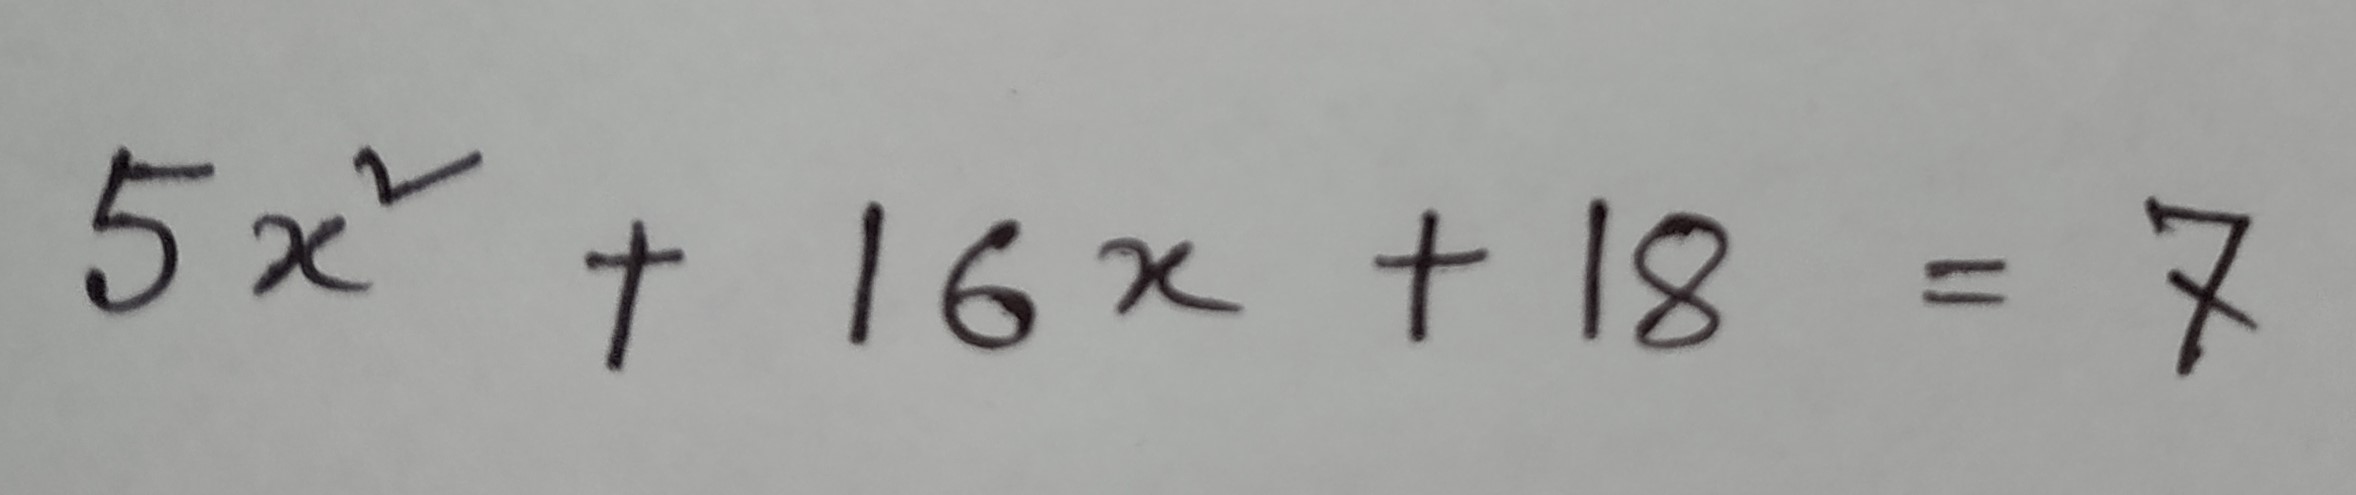 5x² + 16x + 18 = 7